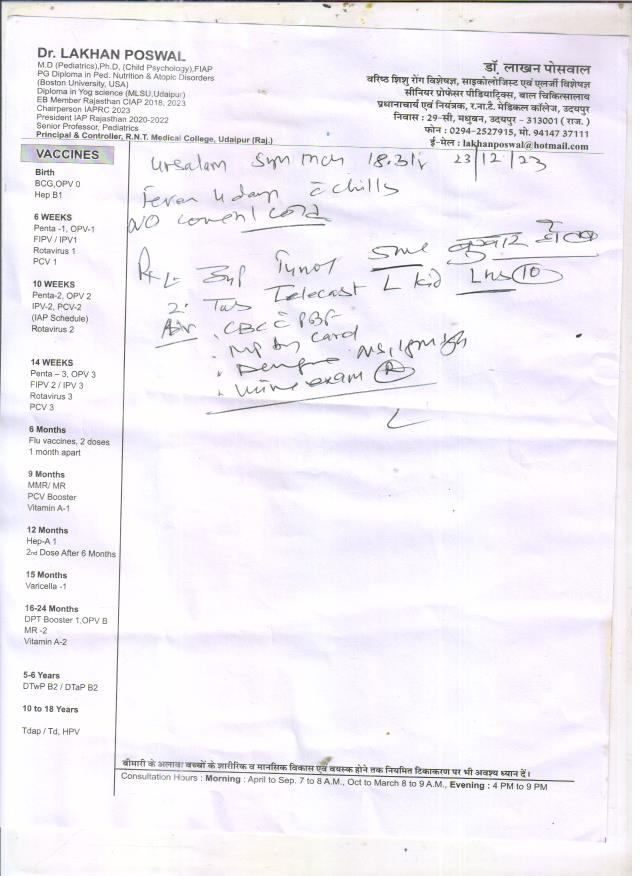 Dr. LAKHAN POSWAL
M.D (Pediatrics),Ph.D, (Child Psychology),FIAP
PG Diploma in Ped. Nutrition & Atopic Disorders
(Boston University, USA)
Diploma in Yog science (MLSU,Udaipur)
EB Member Rajasthan CIAP 2018, 2023
Chairperson IAPRC 2023
President IAP Rajasthan 2020-2022
Senior Professor, Pediatrics
Principal & Controller, R.N.T. Medical College, Udaipur (Raj.)
डॉ. लाखन पोसवाल
वरिष्ठ शिशु रोग विशेषज्ञ, साइकोलोजिस्ट एवं एलर्जी विशेषज्ञ
सीनियर प्रोफेसर पीडियाट्रिक्स, बाल चिकित्सालय
प्रधानाचार्य एवं नियंत्रक, र.ना.टे. मेडिकल कॉलेज, उदयपुर
निवास : 29-सी, मधुबन, उदयपुर – 313001 ( राज. )
फोन : 0294-2527915, मो. 94147 37111
ई-मेल : lakhanposwal@hotmail.com
VACCINES
Birth
BCG,OPV 0
Hep B1
6 WEEKS
Penta -1, OPV-1
FIPV / IPV1
Rotavirus 1
PCV 1
10 WEEKS
Penta-2, OPV 2
IPV-2, PCV-2
(IAP Schedule)
Rotavirus 2
14 WEEKS
Penta – 3, OPV 3
FIPV 2 / IPV 3
Rotavirus 3
PCV 3
6 Months
Flu vaccines, 2 doses
1 month apart
9 Months
MMR/ MR
PCV Booster
Vitamin A-1
12 Months
Hep-A 1
2nd Dose After 6 Months
15 Month
Varicella -1
16-24 Months
DPT Booster 1,OPV B
MR -2
Vitamin A-2
5-6 Years
DTwP B2 / DTaP B2
10 to 18 Years
Tdap / Td, HPV
23/12/23
Fever 4 days c chills
No cold
Syp 5ml
2. Tab Telecast L kid 10
Adv CBC c PBF
MP by card
Dengue NS1, IgM IgG
Urine exam R
बीमारी के अलावा बच्चों के शारीरिक व मानसिक विकास एवं वयस्क होने तक नियमित टिकाकरण पर भी अवश्य ध्यान दें।
Consultation Hours : Morning : April to Sep. 7 to 8 A.M., Oct to March 8 to 9 A.M., Evening : 4 PM to 9 PM